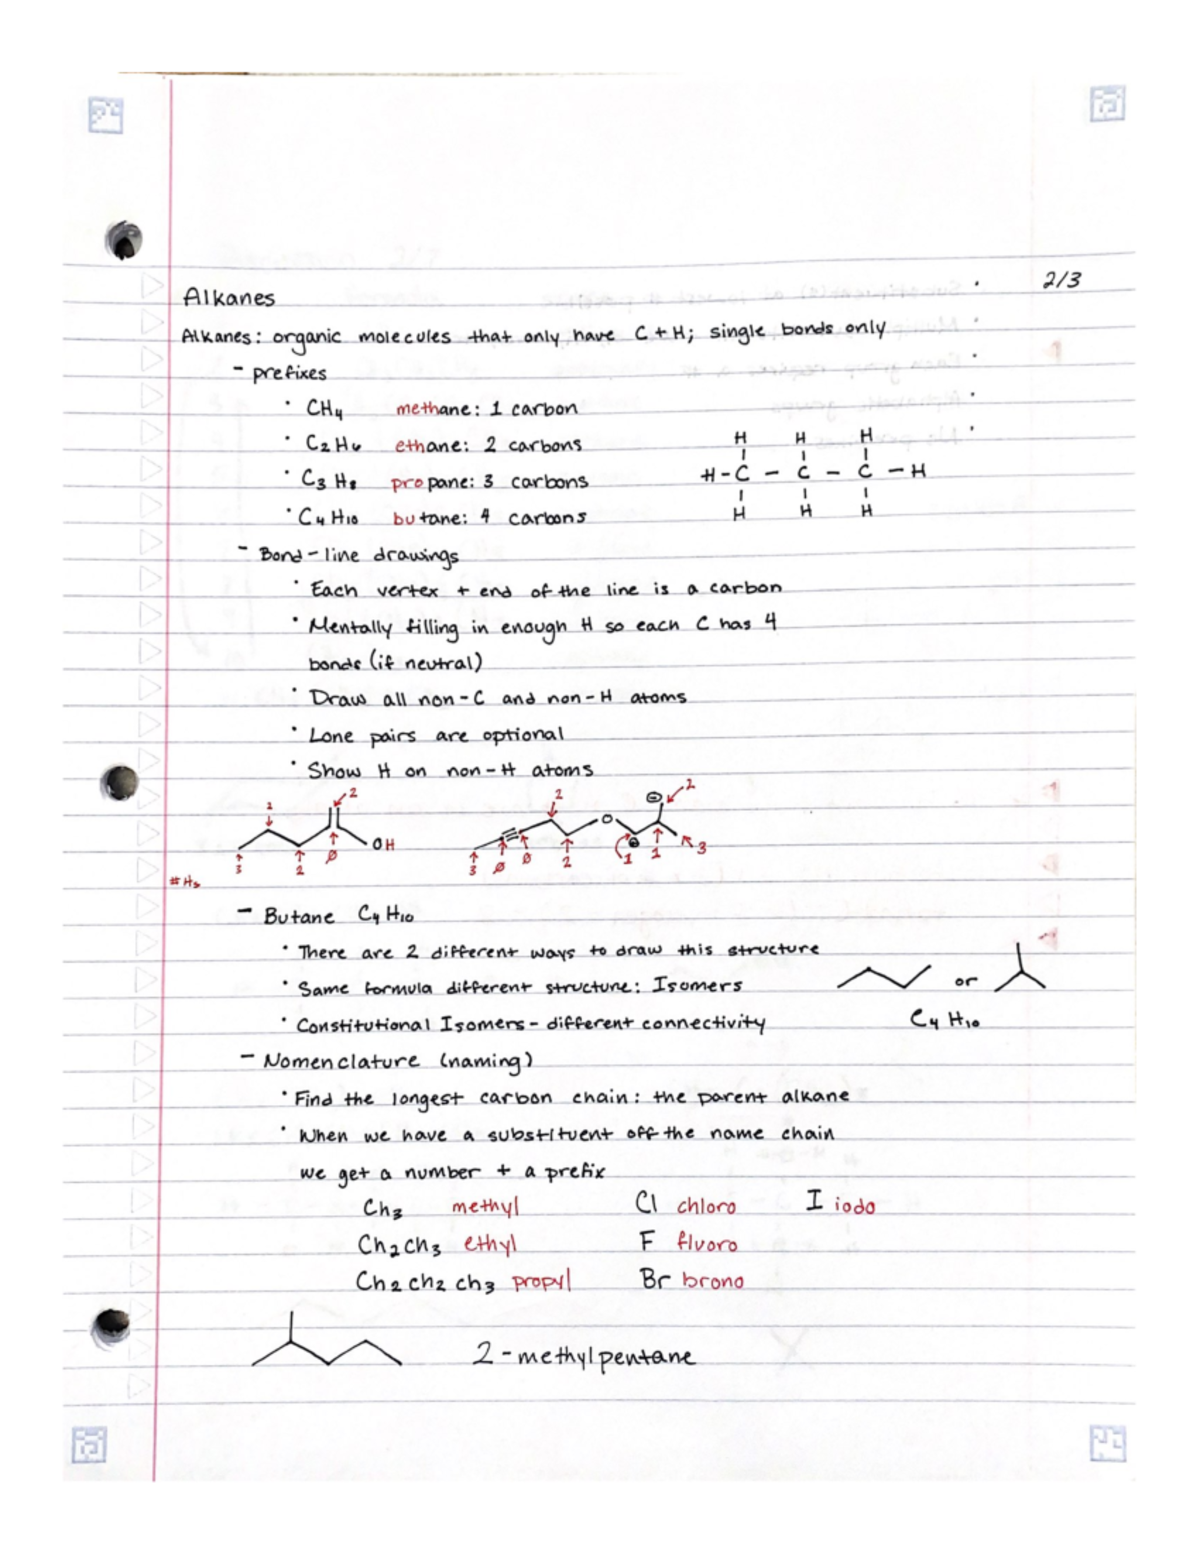 2/3
Alkanes
Alkanes: organic molecules that only have C + H; single bonds only
- prefixes
· CH₄ methane: 1 carbon
· C₂H₆ ethane: 2 carbons
· C₃H₈ propane: 3 carbons
· C₄H₁₀ butane: 4 carbons
H H H
H - C - C - C - H
H H H
- Bond-line drawings
· Each vertex + end of the line is a carbon
· Mentally filling in enough H so each C has 4
bonds (if neutral)
· Draw all non-C and non-H atoms
· Lone pairs are optional
· Show H on non-H atoms
2 2 OH 3 2 Ø
2 2 O ⊖ 2 3 Ø Ø 2 ⊖ 1 1 3
# Hs
- Butane C₄H₁₀
· There are 2 different ways to draw this structure
· Same formula different structure: Isomers
or
· Constitutional Isomers - different connectivity
C₄H₁₀
- Nomenclature (naming)
· Find the longest carbon chain: the parent alkane
· When we have a substituent off the name chain
we get a number + a prefix
Ch₃ methyl Cl chloro I iodo
Ch₂ch₃ ethyl F fluoro
Ch₂ch₂ch₃ propyl Br brono
2-methylpentane